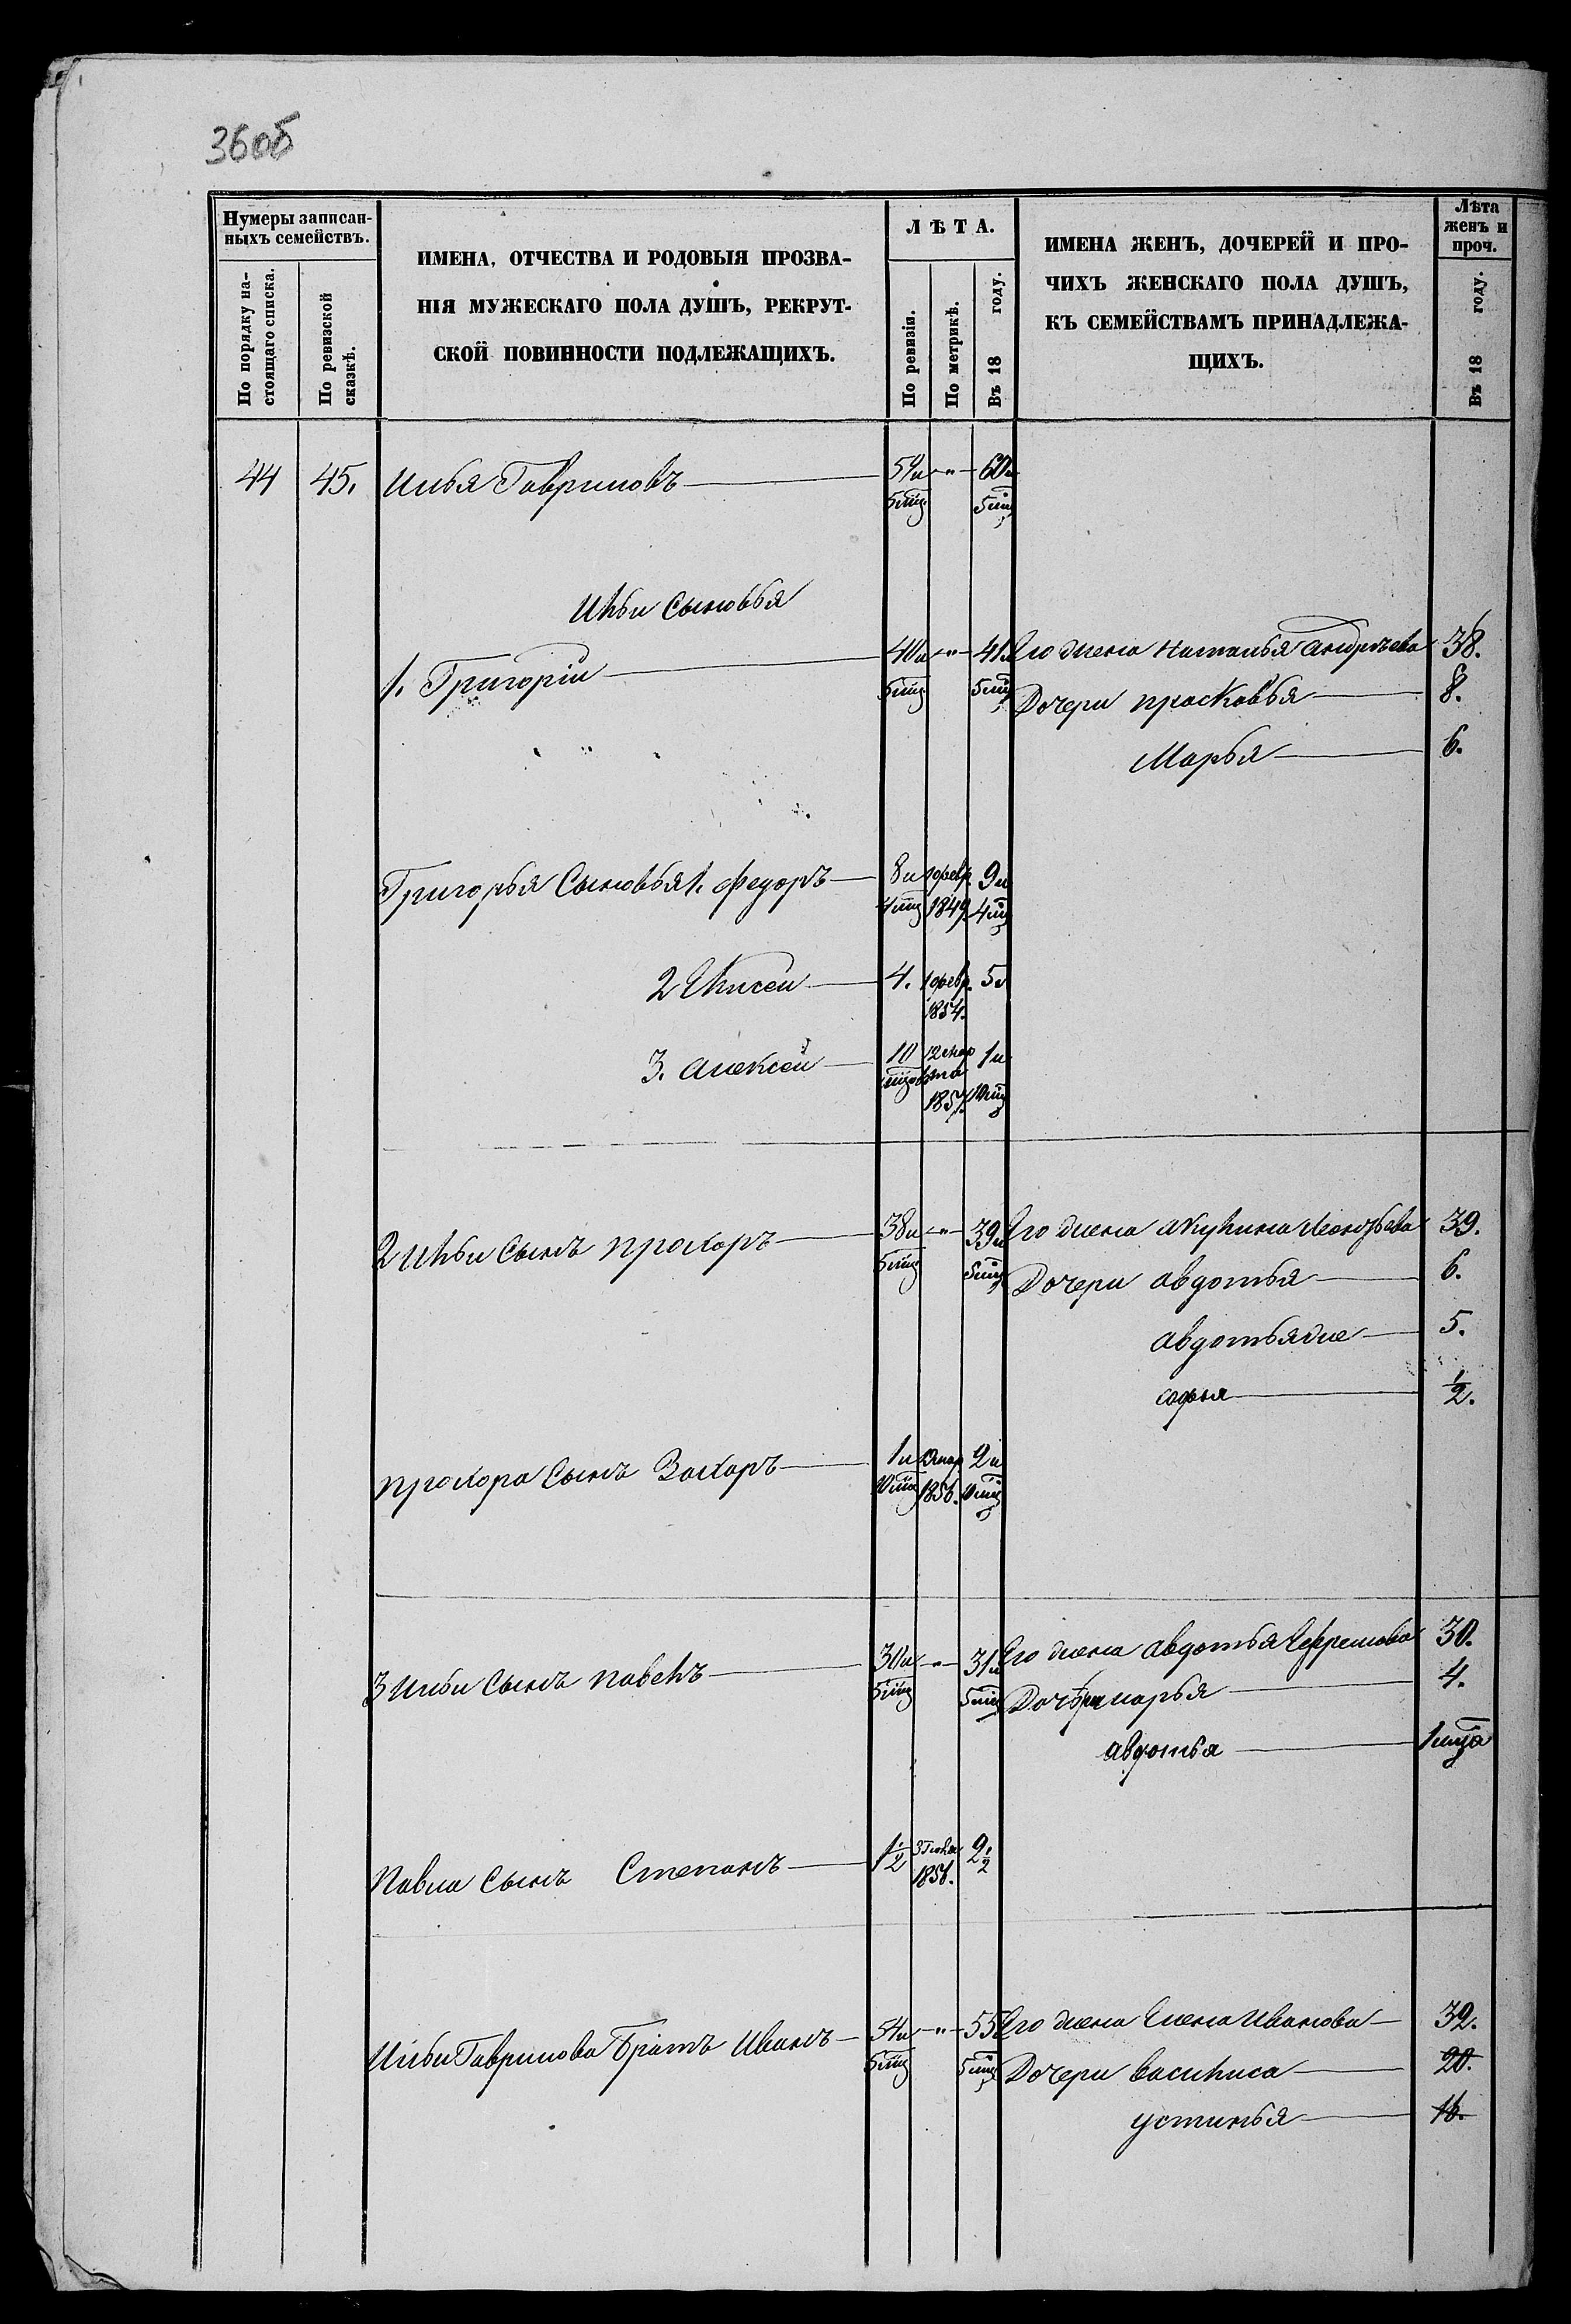 36об
Нумеры записан-
ныхъ семействъ.
По порядку на-
стоящаго списка.
По ревизской
сказкѣ.
ИМЕНА, ОТЧЕСТВА И РОДОВЫЯ ПРОЗВА-
НІЯ МУЖЕСКАГО ПОЛА ДУШЪ, РЕКРУТ-
СКОЙ ПОВИННОСТИ ПОДЛЕЖАЩИХЪ.
ЛѢТА.
По ревизіи.
По метрикѣ.
Въ 18 году.
ИМЕНА ЖЕНЪ, ДОЧЕРЕЙ И ПРО-
ЧИХЪ ЖЕНСКАГО ПОЛА ДУШЪ,
КЪ СЕМЕЙСТВАМЪ ПРИНАДЛЕЖА-
ЩИХЪ.
Лѣта
женъ и
проч.
Въ 18 году.
44 45. Илья Гавриловъ 59и " 60и
5мц 5мц
Ильи Сыновья
1. Григорій 40и " 41и Его жена Наталья Андрѣева 38.
5мц 5мц Дочери Прасковья 8.
Марья 6.
Григорья Сыновья 1. Федоръ 8и февр. 9и
4мц 1849. 4мц
2 Елисей 4. февр. 5
1854.
3. Алексей 10 1и
1857. 10мц
2 Ильи Сынъ Прохоръ 38и " 39и Его жена Акулина Леонтьева 39.
5мц 5мц Дочери Авдотья 6.
Авдотья же 5.
Софья ½.
Прохора Сынъ Захаръ 1и мар 2и
10мц 1856. 10мц
3 Ильи Сынъ Павелъ 30и " 31и Его жена Авдотья Ефремова 30.
5мц 5мц Дочери Марья 4.
Авдотья 1мца
Павла Сынъ Степанъ 1½ 2½
1856.
Ильи Гаврилова Братъ Иванъ 54и " 55 Его жена Елена Иванова 32.
5мц 5мц Дочери Василиса 20.
Устинья 16.